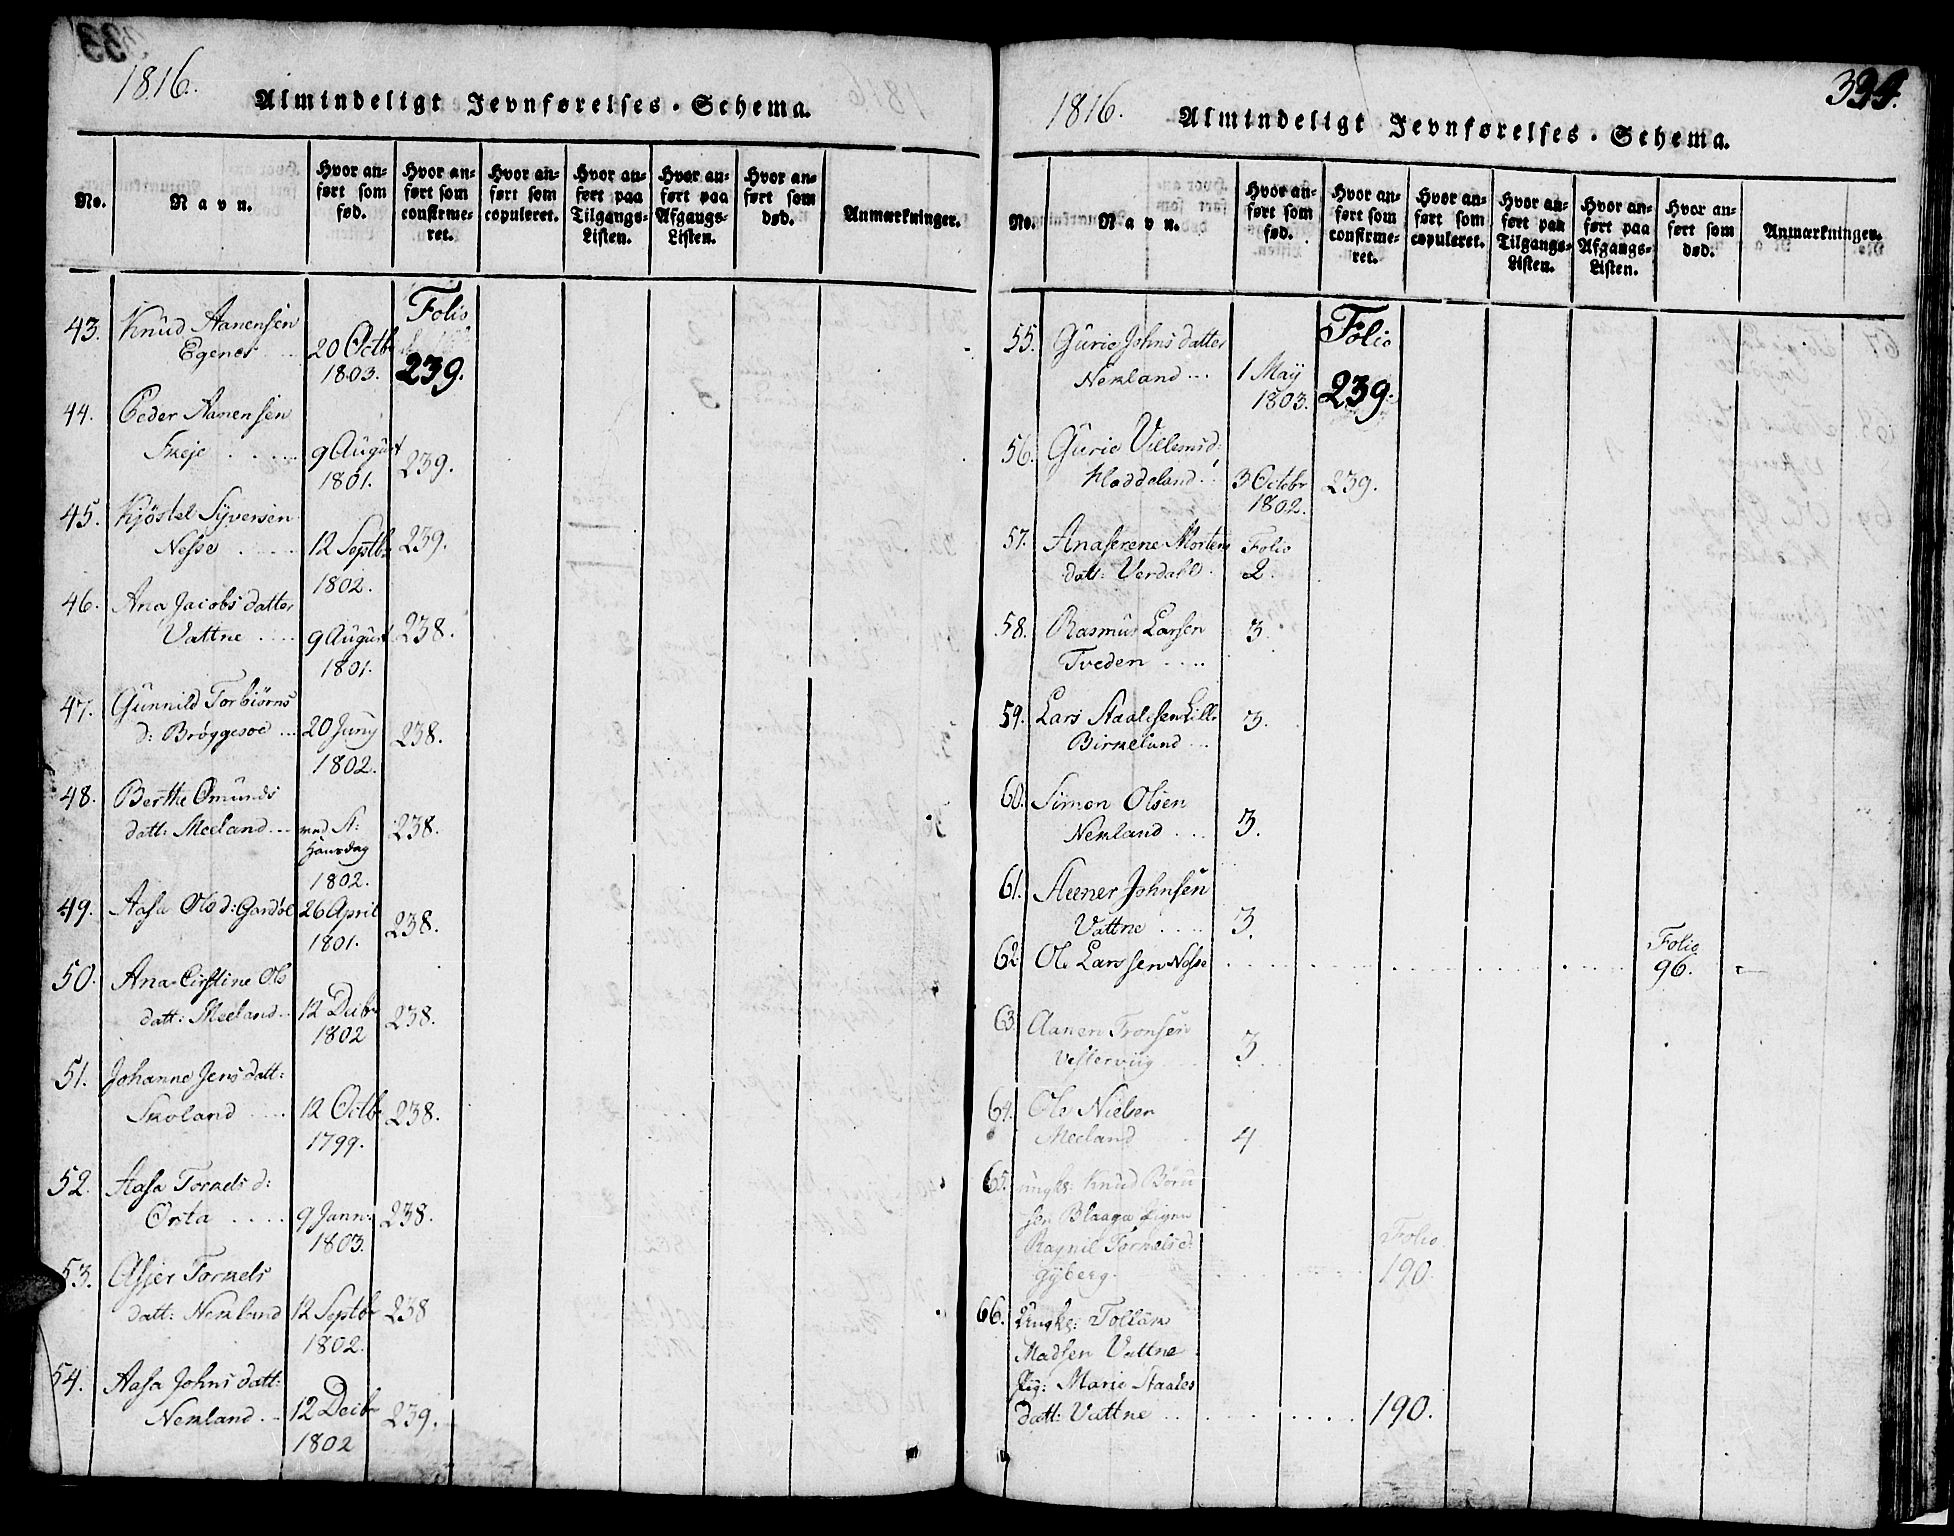 1816.
Almindeligt Jevnførelses-Schema.
No.
Navn.
Hvor an-
ført som
fød.
Hvor an-
ført som
confirme-
ret.
Hvor an-
ført som
copuleret.
Hvor an-
ført paa
Tilgangs-
Listen.
Hvor an-
ført paa
Afgangs-
Listen.
Hvor an-
ført som
død.
Anmærkninger.
Folio
43. Knud Aanensen
Egenes 20 Octbr
1803. 239.
44. Peder Aanensen
Freje 9 August
1801. 239.
45. Kjöstel Syversen
Nesse 12 Septbr 239.
1802.
46. Ana Jacobs datter
Vattne 9 August 238.
1801.
47. Gunnild Torbiørns
d: Brøggesoe 20 Juny 238.
1802.
48. Berthe Omunds
datt: Meeland ved St: 238.
Hansdag
1802.
49. Aasa Ols d: Gardöl 26 April 238.
1801.
50. Ana Cirstine Ols
datt: Meeland 12 Decbr 238.
1802
51. Johanne Jens datt:
Skoland 12 Octbr 238.
1799.
52. Aasa Tormels d:
Orsta 9 Janu: 238.
1803.
53. Asjer Tormels
datt: Nemland 12 Septbr 238
1802.
54. Aasa Johns datt:
Nemland 12 Decbr 239.
1802
1816.
394.
Almindeligt Jevnførelses-Schema.
No.
Navn.
Hvor an-
ført som
fød.
Hvor an-
ført som
confirme-
ret.
Hvor an-
ført som
copuleret.
Hvor an-
ført paa
Tilgangs-
Listen.
Hvor an-
ført paa
Afgangs-
Listen.
Hvor an-
ført som
død.
Anmærkninger.
55. Gurie Johns datter Folio
Nemland 1 May
1803. 239.
56. Gurie Villems d:
Haddeland 3 Octobr 239.
1802.
57. Anaserene Mortens Folio
datt: Verdahl 2.
58. Rasmus Larsen 3.
Tveden
59. Lars Staalesen Lille 3.
Birkeland
60. Simon Olsen
Nemland 3.
61. Steener Johnsen
Vattne 3.
Folio
62. Ole Larssen Nesse 96.
63. Aanen Tronsen 3
Vesterviig
64. Ole Nielsen
Meeland 4
65. ungk: Knud Böru
sen Blaaga pigen
Ragnil Tormels d: Folio
Gyberg. 190.
66. Ungk: Tollak
Madsen Vattne
Pig: Marie Staales
datt: Vattne 190.